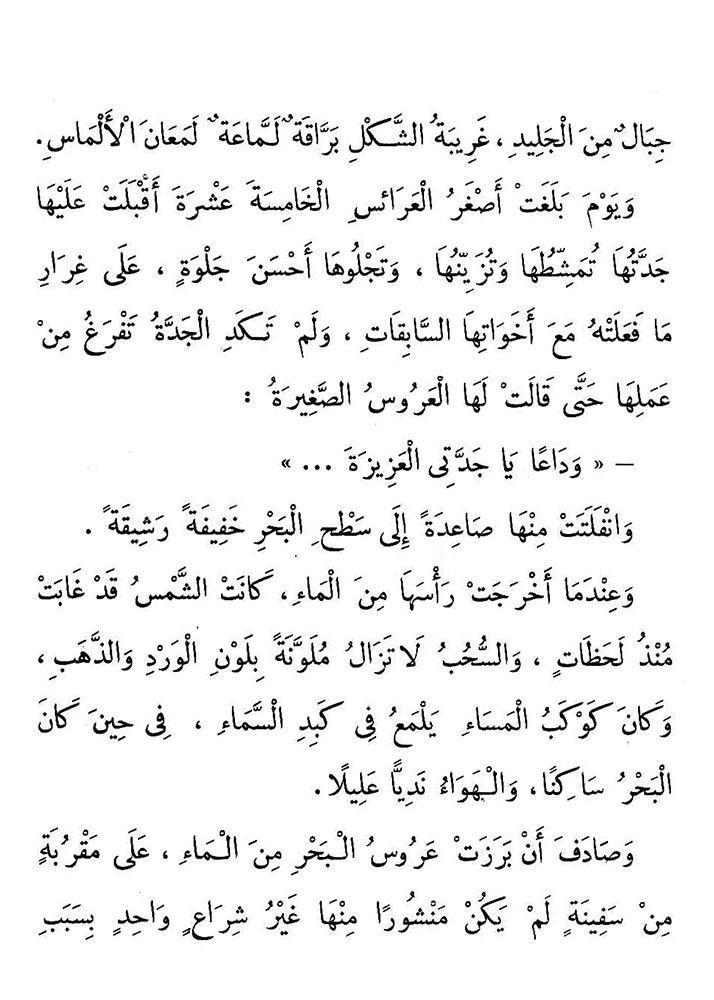 جِبَالٌ مِنَ الْجَلِيدِ ، غَرِيبَةُ الشَّكْلِ بَرَّاقَةٌ لَمَّاعَةٌ لَمَعَانَ الْأَلْمَاسِ.
وَيَوْمَ بَلَغَتْ أَصْغَرُ الْعَرَائِسِ الْخَامِسَةَ عَشْرَةَ أَقْبَلَتْ عَلَيْهَا
جَدَّتُهَا تُمَشِّطُهَا وَتُزَيِّنُهَا ، وَتَجْلُوهَا أَحْسَنَ جَلْوَةٍ ، عَلَى غِرَارِ
مَا فَعَلَتْهُ مَعَ أَخَوَاتِهَا السَّابِقَاتِ ، وَلَمْ تَكَدِ الْجَدَّةُ تَفْرَغُ مِنْ
عَمَلِهَا حَتَّى قَالَتْ لَهَا الْعَرُوسُ الصَّغِيرَةُ :
– « وَدَاعًا يَا جَدَّتِى الْعَزِيزَةَ ... »
وَانْفَلَتَتْ مِنْهَا صَاعِدَةً إِلَى سَطْحِ الْبَحْرِ خَفِيفَةً رَشِيقَةً .
وَعِنْدَمَا أَخْرَجَتْ رَأْسَهَا مِنَ الْمَاءِ، كَانَتْ الشَّمْسُ قَدْ غَابَتْ
مُنْذُ لَحَظَاتٍ ، وَالسُّحُبُ لَا تَزَالُ مُلَوَّنَةً بِلَوْنِ الْوَرْدِ وَالذَّهَبِ ،
وَكَانَ كَوْكَبُ الْمَسَاءِ يَلْمَعُ فِى كَبِدِ السَّمَاءِ ، فِى حِينَ كَانَ
الْبَحْرُ سَاكِنًا، وَالْهَوَاءُ نَدِيًّا عَلِيلًا.
وَصَادَفَ أَنْ بَرَزَتْ عَرُوسُ الْبَحْرِ مِنَ الْمَاءِ ، عَلَى مَقْرُبَةٍ
مِنْ سَفِينَةٍ لَمْ يَكُنْ مَنْشُورًا مِنْهَا غَيْرُ شِرَاعٍ وَاحِدٍ بِسَبَبِ